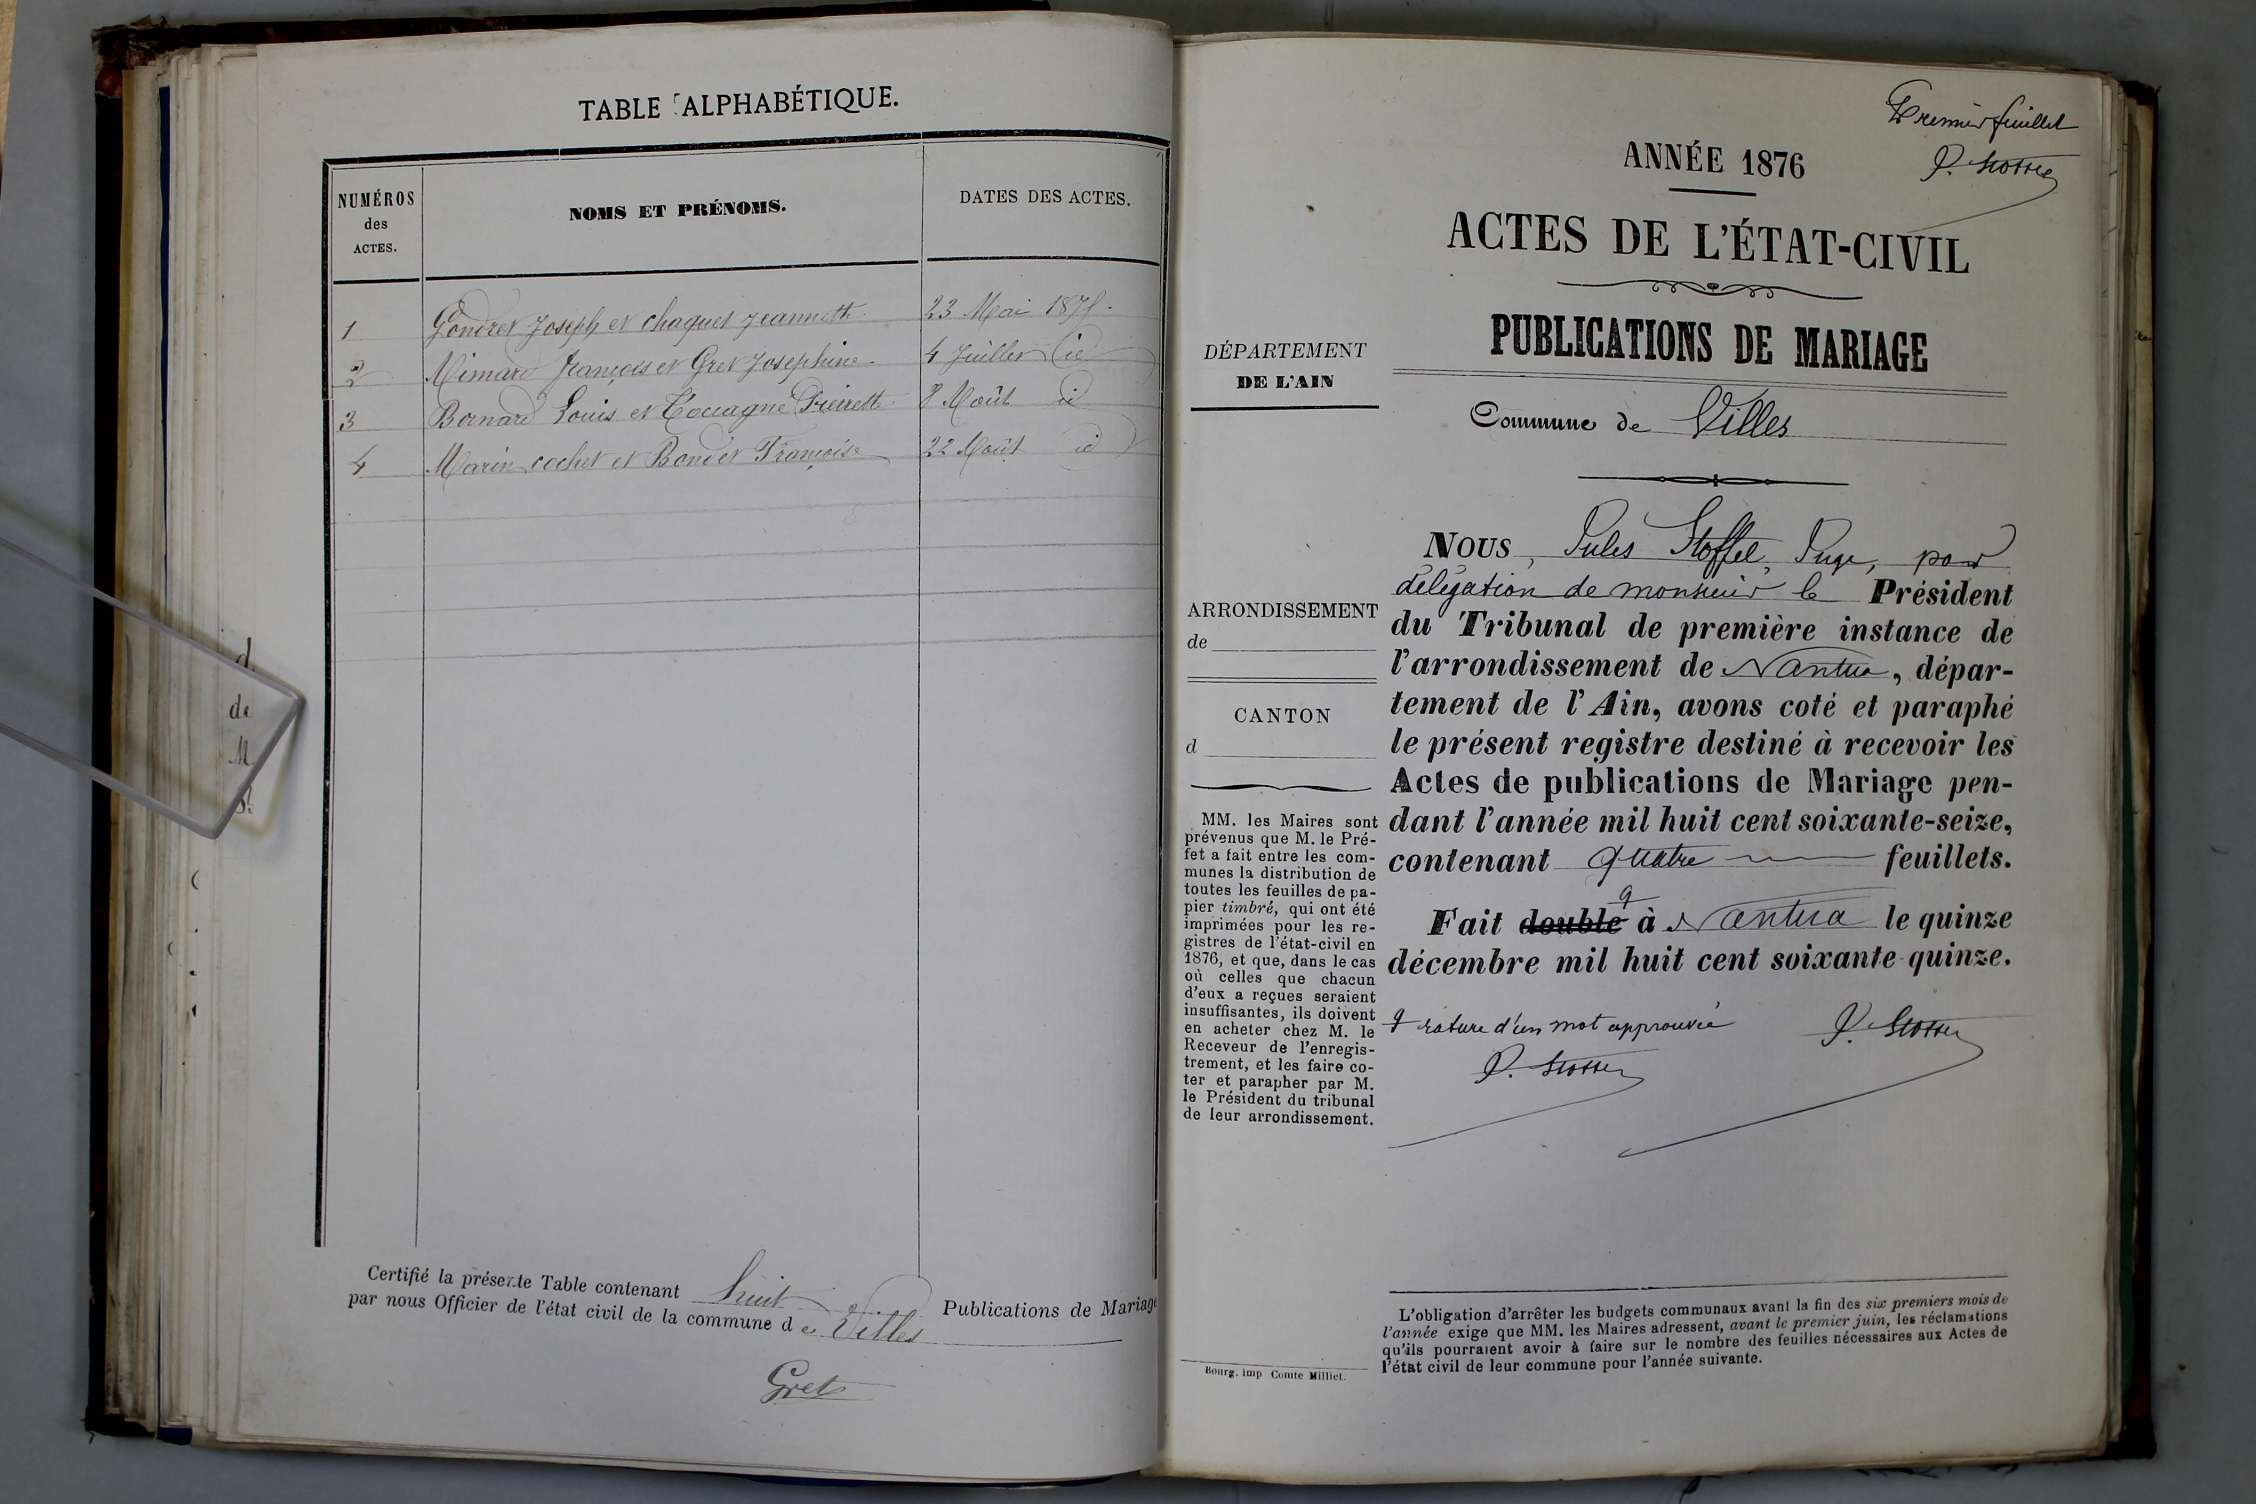 TABLE ALPHABÉTIQUE.
NUMÉROS
des
ACTES.
NOMS ET PRÉNOMS.
DATES DES ACTES.
1 Gondret Joseph et Chaquet Jeannette 23 Mai 1875.
2 Mimard François et Gret Josephine 4 Juillet id
3 Bornard Louis et Coccagne Pierrette 8 Août id
4 Marin cochet et Bondet Françoise 22 Août id
Certifié la présente Table contenant huit Publications de Mariage
par nous Officier de l'état civil de la commune de Villes
Gret
Premier feuillet
ANNÉE 1876
ACTES DE L'ÉTAT-CIVIL
PUBLICATIONS DE MARIAGE
Commune de Villes
DÉPARTEMENT
DE L'AIN
ARRONDISSEMENT
de
CANTON
d
MM. les Maires sont
prévenus que M. le Pré-
fet a fait entre les com-
munes la distribution de
toutes les feuilles de pa-
pier timbré, qui ont été
imprimées pour les re-
gistres de l'état-civil en
1876, et que, dans le cas
où celles que chacun
d'eux a reçues seraient
insuffisantes, ils doivent
en acheter chez M. le
Receveur de l'enregis-
trement, et les faire co-
ter et parapher par M.
le Président du tribunal
de leur arrondissement.
Bourg. imp Comte Milliet.
NOUS, Jules Stoffel, Juge, par
délégation de monsieur le Président
du Tribunal de première instance de
l'arrondissement de Nantua, dépar-
tement de l'Ain, avons coté et paraphé
le présent registre destiné à recevoir les
Actes de publications de Mariage pen-
dant l'année mil huit cent soixante-seize,
contenant quatre feuillets.
Fait double à Nantua le quinze
décembre mil huit cent soixante-quinze.
rature d'un mot approuvée
J. Stoffel
J. Stoffel
L'obligation d'arrêter les budgets communaux avant la fin des six premiers mois de
l'année exige que MM. les Maires adressent, avant le premier juin, les réclamations
qu'ils pourraient avoir à faire sur le nombre des feuilles nécessaires aux Actes de
l'état civil de leur commune pour l'année suivante.